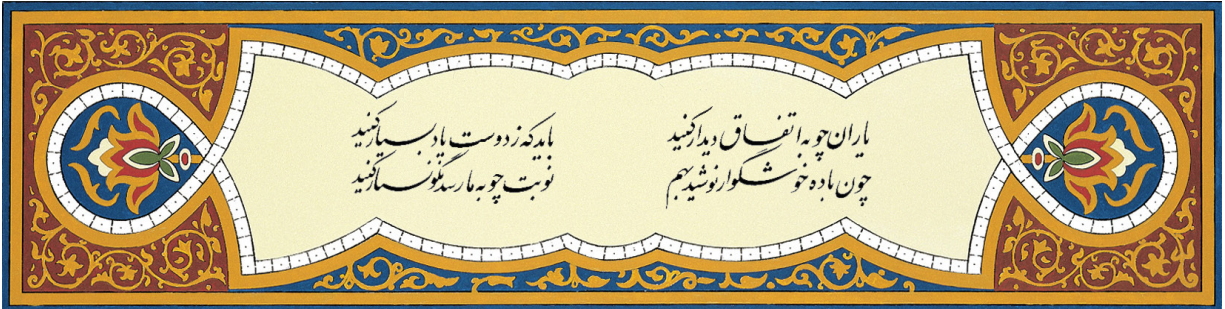 یاران چو به اتفاق دیدار کنید باید که ز دوست یاد بسیار کنید
چون باده خوشگوار نوشید بهم نوبت چو به ما رسد نگونسار کنید